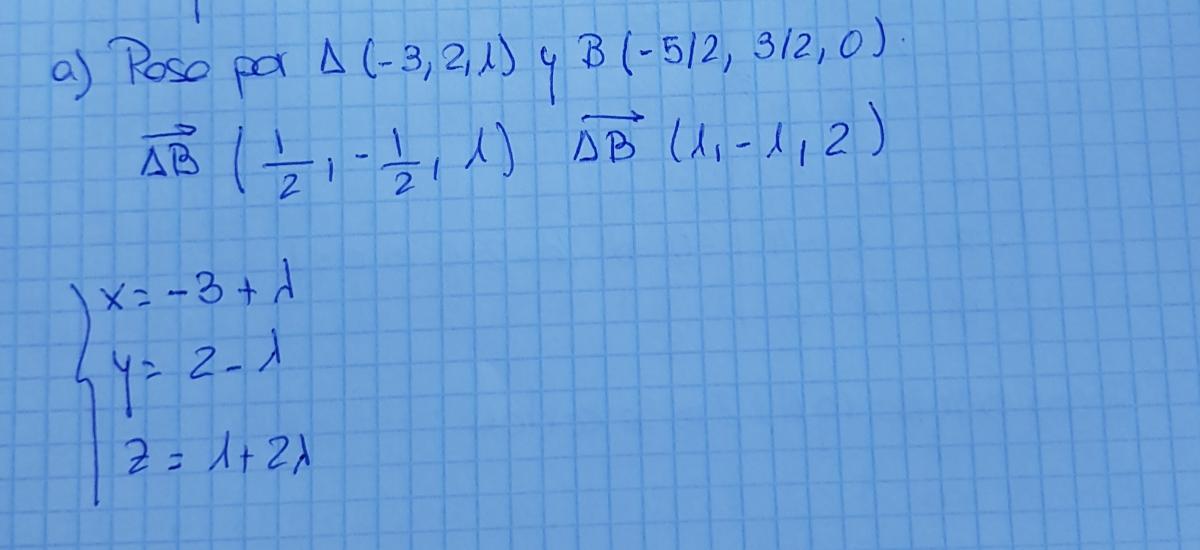 a) Pasa por A (-3, 2, 1) y B (-5/2, 3/2, 0).
AB (1/2, -1/2, 1) AB (1, -1, 2)
x = -3 + λ
y = 2 - λ
z = 1 + 2λ